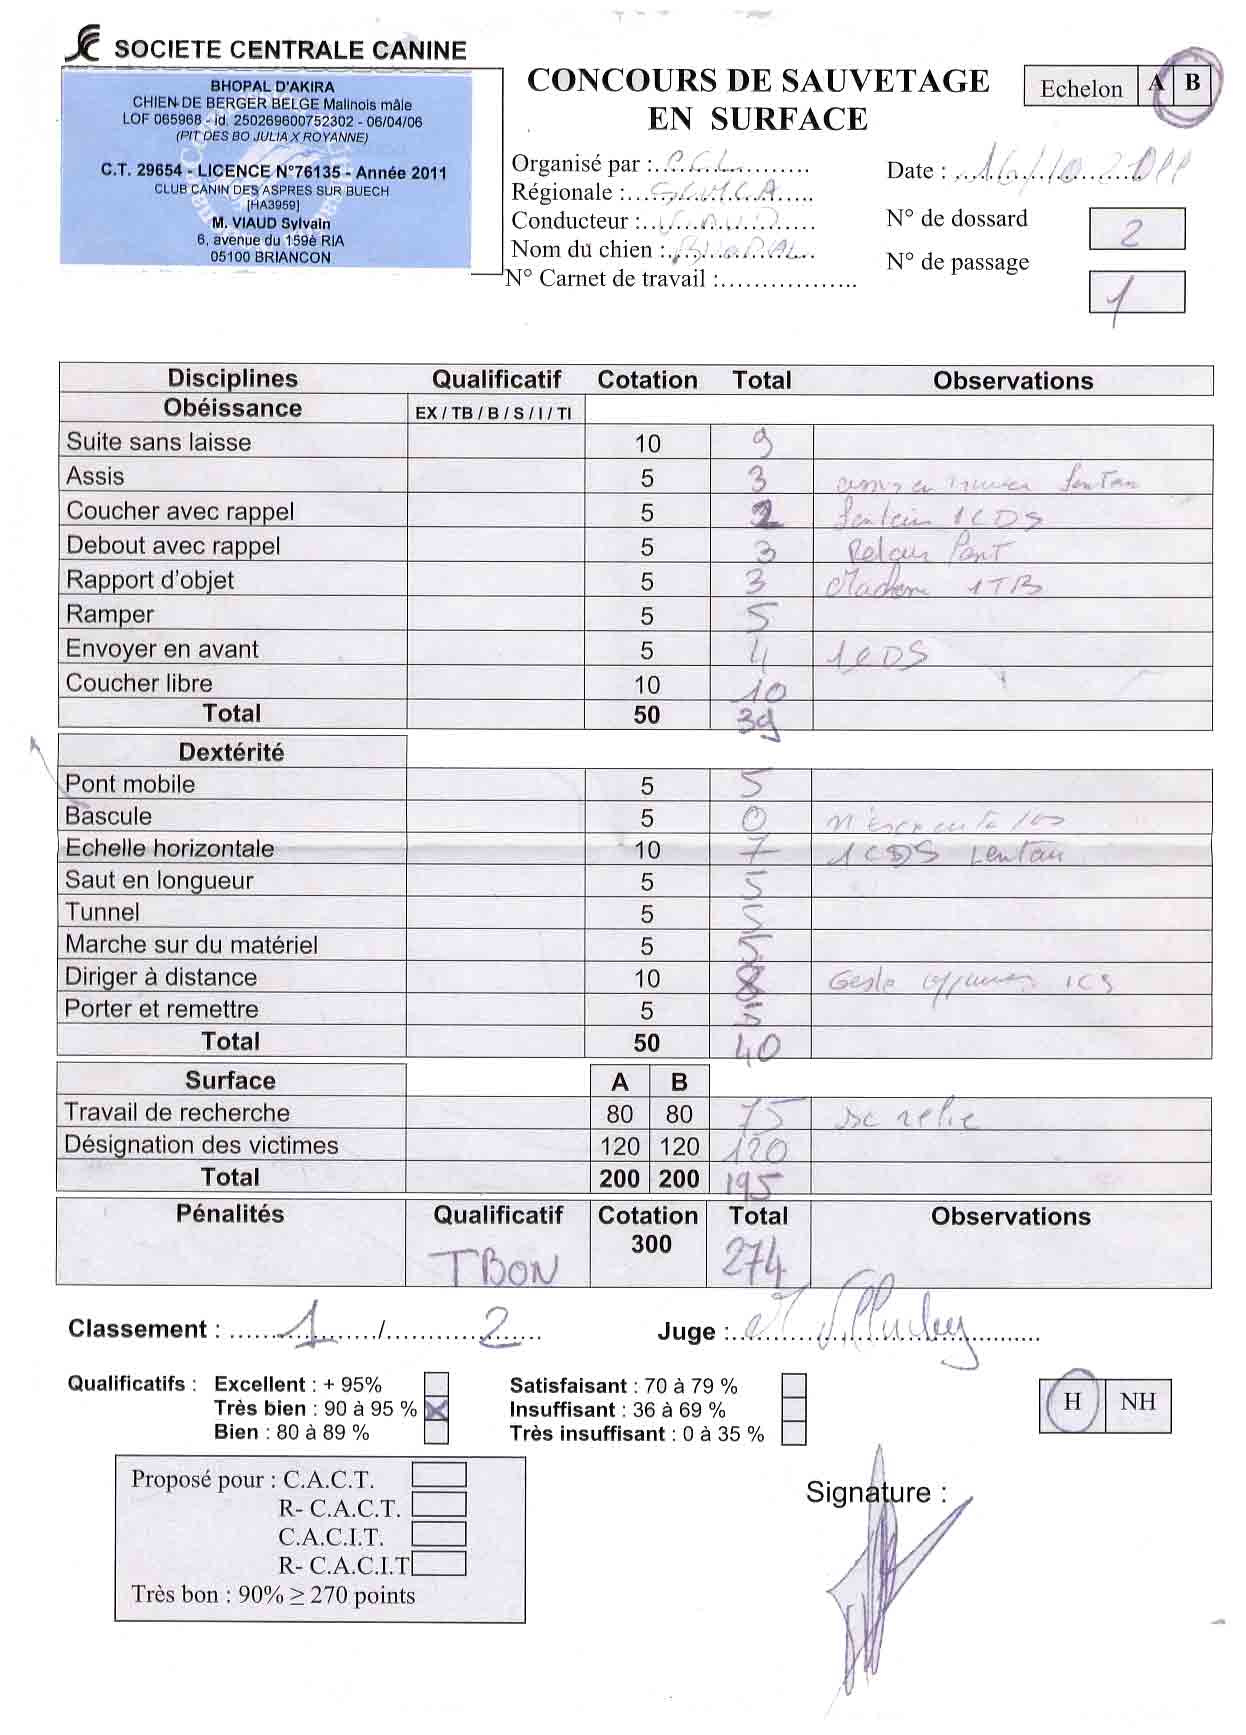 SOCIETE CENTRALE CANINE
BHOPAL D'AKIRA
CHIEN DE BERGER BELGE Malinois mâle
LOF 065968 - id. 250269600752302 - 06/04/06
(PIT DES BO JULIA X ROYANNE)
C.T. 29654 - LICENCE N°76135 - Année 2011
CLUB CANIN DES ASPRES SUR BUECH
[HA3959]
M. VIAUD Sylvain
6, avenue du 159è RIA
05100 BRIANCON
CONCOURS DE SAUVETAGE
EN SURFACE
Echelon A B
Organisé par :
Régionale :
Conducteur : VIAUD
Nom du chien : BHOPAL
N° Carnet de travail :
Date : 16/10 2011
N° de dossard 2
N° de passage 1
Disciplines Qualificatif Cotation Total Observations
Obéissance EX / TB / B / S / I / TI
Suite sans laisse 10 9
Assis 5 3
Coucher avec rappel 5 2 1CDS
Debout avec rappel 5 3 Retour
Rapport d'objet 5 3 1TB
Ramper 5 5
Envoyer en avant 5 4 1CDS
Coucher libre 10 10
Total 50 39
Dextérité
Pont mobile 5 5
Bascule 5 0
Echelle horizontale 10 7 1CDS Lenteur
Saut en longueur 5 5
Tunnel 5 5
Marche sur du matériel 5 5
Diriger à distance 10 8 Geste
Porter et remettre 5 5
Total 50 40
Surface A B
Travail de recherche 80 80 75
Désignation des victimes 120 120 120
Total 200 200 195
Pénalités Qualificatif Cotation Total Observations
TBON 300 274
Classement : 1 / 2 Juge :
Qualificatifs : Excellent : + 95% Satisfaisant : 70 à 79 %
Très bien : 90 à 95 % Insuffisant : 36 à 69 %
Bien : 80 à 89 % Très insuffisant : 0 à 35 %
H NH
Proposé pour : C.A.C.T.
R- C.A.C.T.
C.A.C.I.T.
R- C.A.C.I.T
Très bon : 90% ≥ 270 points
Signature :